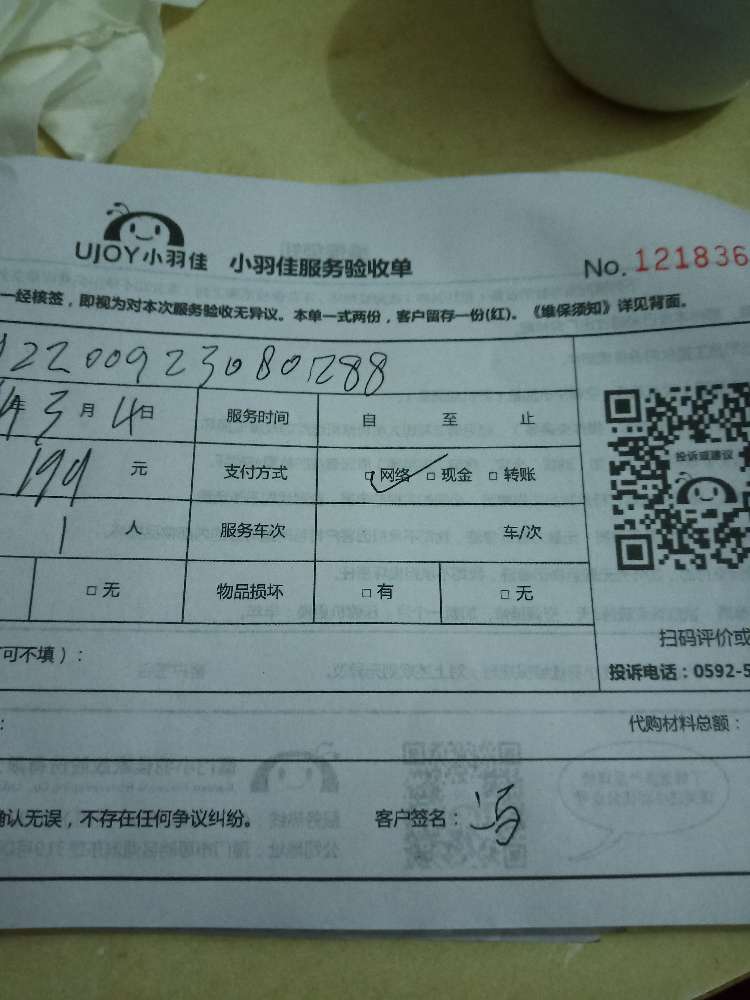 UJOY小羽佳 小羽佳服务验收单 No. 121836
一经核签，即视为对本次服务验收无异议。本单一式两份，客户留存一份(红)。《维保须知》详见背面。
2200923080288
年3月4日 服务时间 自 至 止
199元 支付方式 □网络 □现金 □转账
1人 服务车次 车/次
□无 物品损坏 □有 □无
投诉或建议
可不填）：
扫码评价或
投诉电话：0592-5
代购材料总额：
确认无误，不存在任何争议纠纷。 客户签名：冯